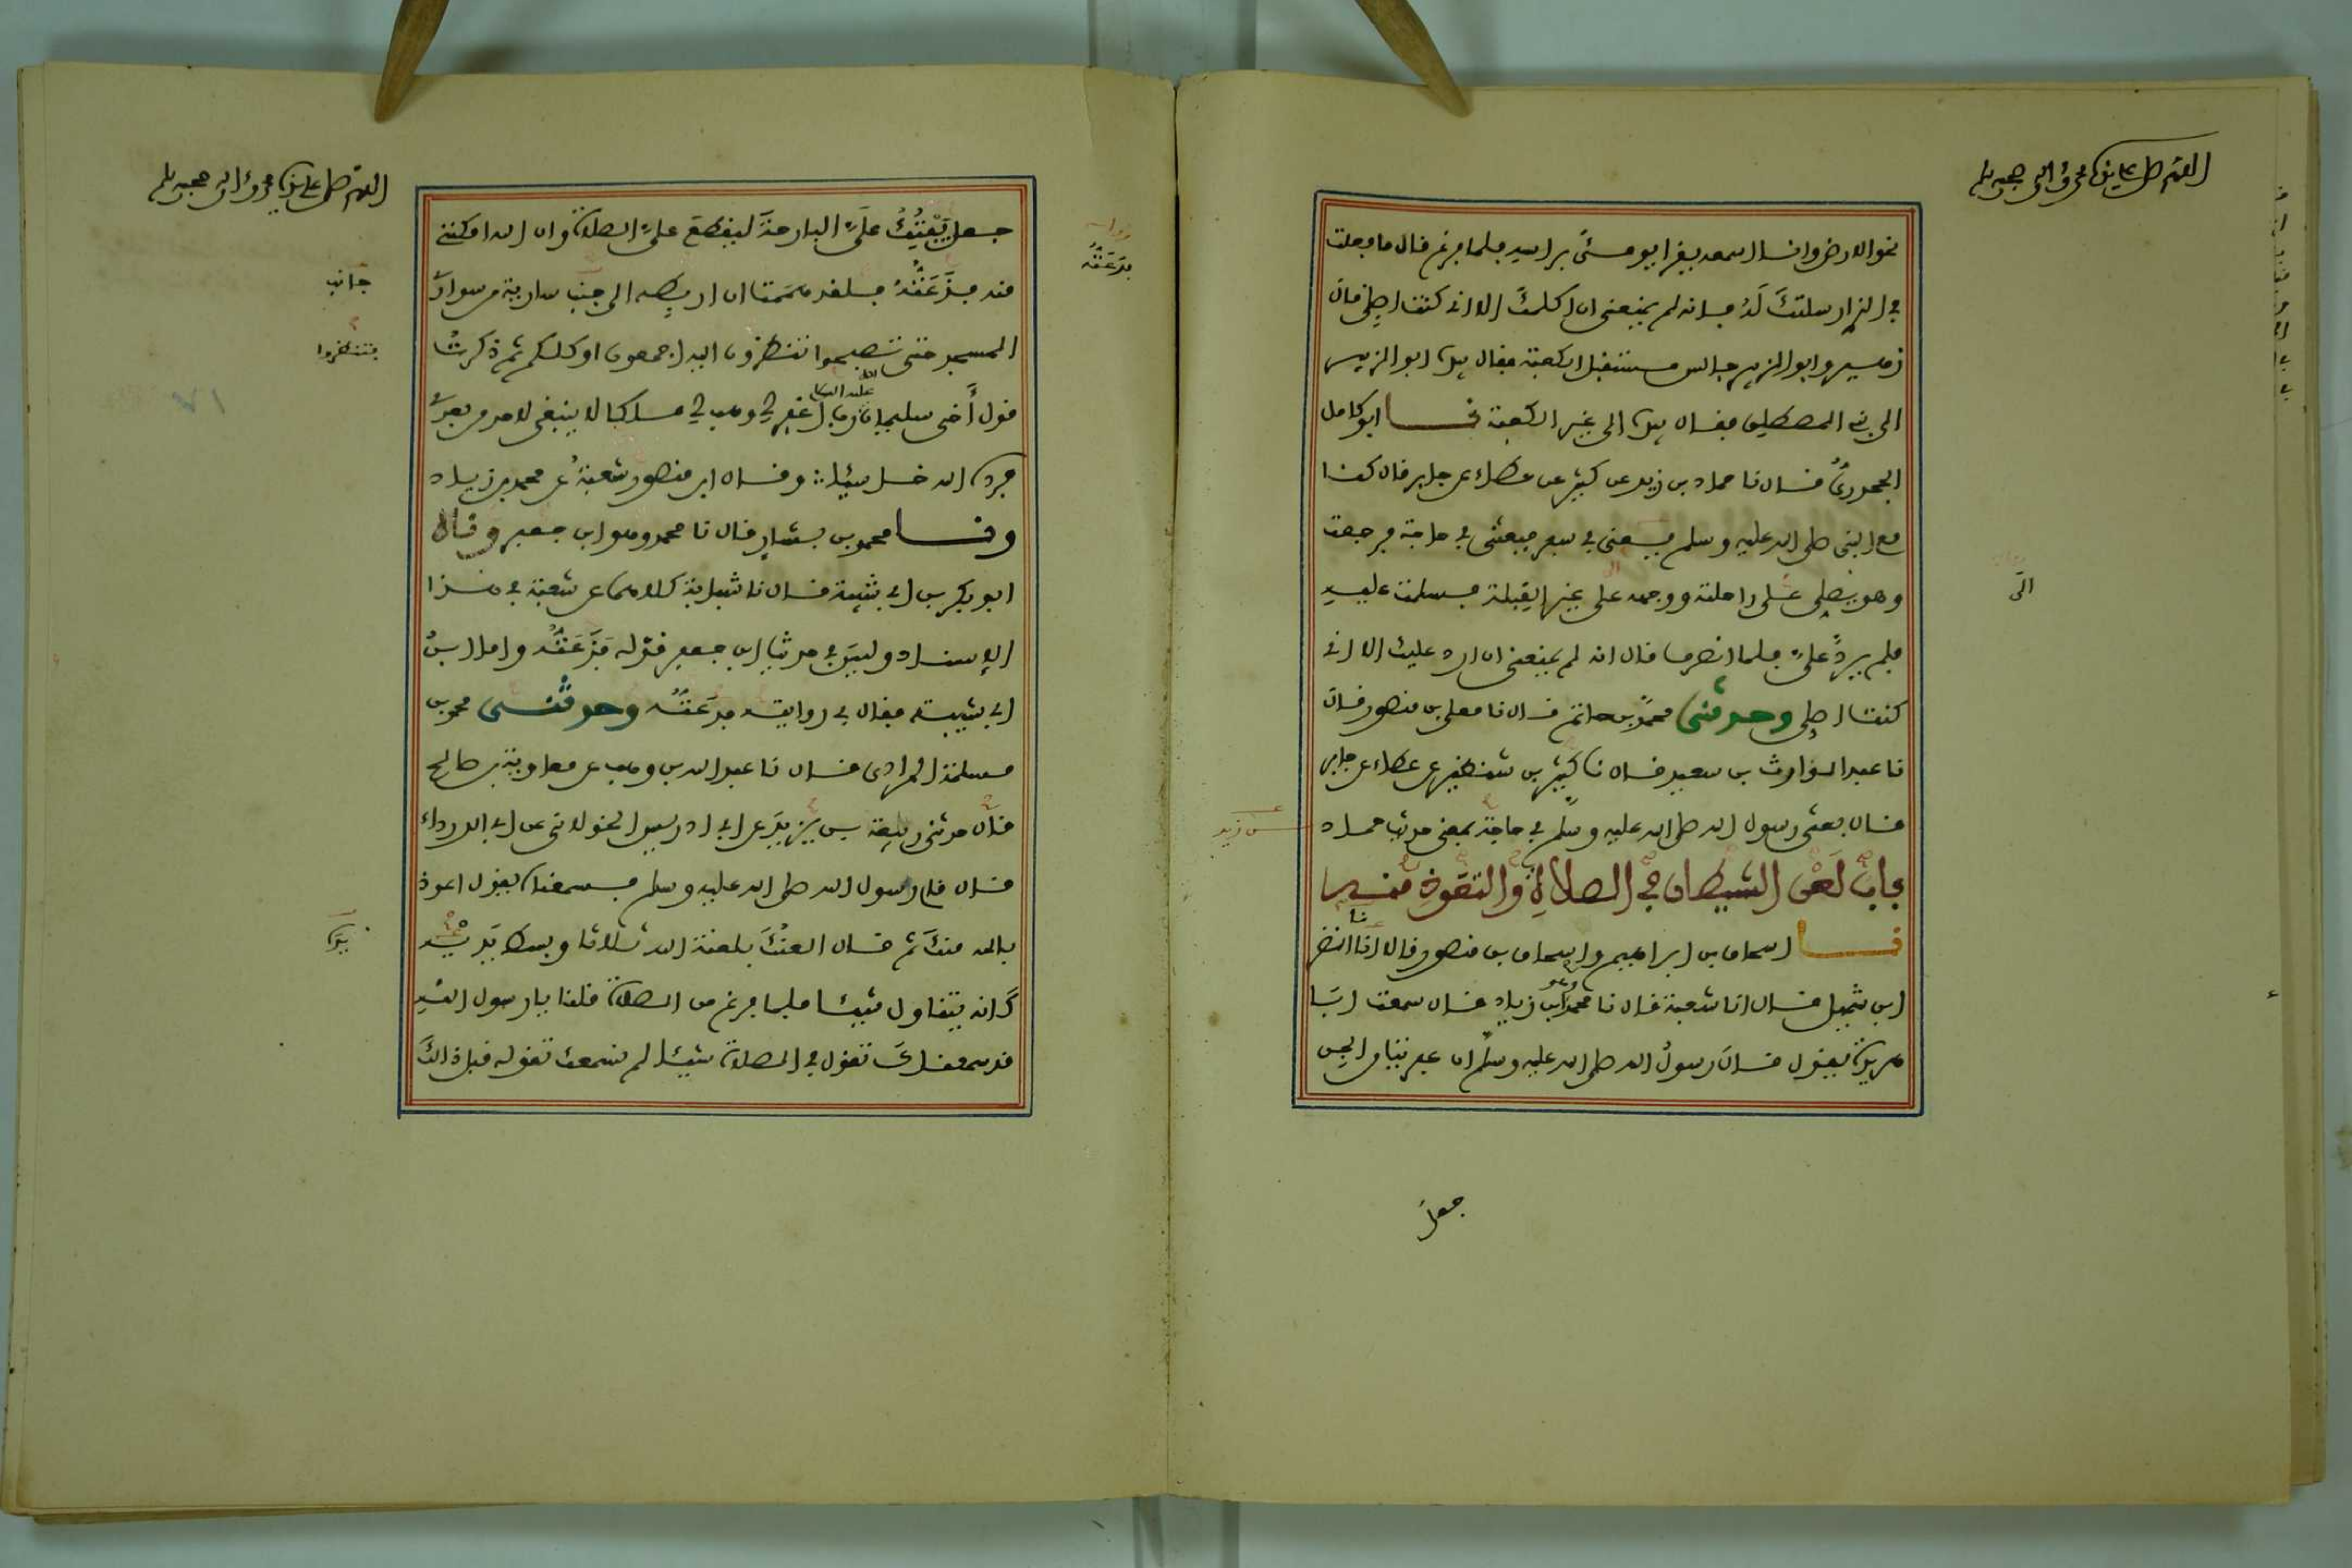 اللهم صل على سيدنا محمد وآله وصحبه وسلم
نحو الارض وانا اسمعه يقرا يومئ براسه فلما فرغ قال ما فعلت
في الذي ارسلتك له فانه لم يمنعني ان اكلمك الا اني كنت اصلي قال
زهير وابو الزبير جالس مستقبل الكعبة فقال بيده ابو الزبير
الى بني المصطلق فقال بيده الى غير الكعبة نا ابو كامل
الجحدري قال نا حماد بن زيد عن كثير عن عطاء عن جابر قال كنا
مع النبي صلى الله عليه وسلم يعني في سفر فبعثني في حاجة فرجعت
وهو يصلي على راحلته ووجهه على غير القبلة فسلمت عليه
الى
فلم يرد علي فلما انصرف قال انه لم يمنعني ان ارد عليك الا اني
كنت اصلي وحدثني محمد بن حاتم قال نا معلى بن منصور قال
نا عبد الوارث بن سعيد قال نا كثير بن شنظير عن عطاء عن جابر
قال بعثني رسول الله صلى الله عليه وسلم في حاجة بمعنى حديث حماد
بن زيد
باب لعن الشيطان في الصلاة والتعوذ منه
نا اسحاق بن ابراهيم واسحاق بن منصور قالا انا النضر
ابن شميل قال انا شعبة قال نا محمد وهو ابن زياد قال سمعت ابا
هريرة يقول قال رسول الله صلى الله عليه وسلم ان عفريتا من الجن
جعل
اللهم صل على سيدنا محمد وآله وصحبه وسلم
جعل يفتك علي البارحة ليقطع علي الصلاة وان الله امكنني
منه فذعته فلقد هممت ان اربطه الى جنب سارية من سواري
فدعته
جانب
المسجد حتى تصبحوا تنظرون اليه اجمعون او كلكم ثم ذكرت
فتنظروا
قول أخي سليمان عليه السلام رب اغفر لي وهب لي ملكا لا ينبغي لاحد من بعدي
فرده الله خاسئا وقال ابن منصور شعبة عن محمد بن زياد
ونا محمد بن بشار قال نا محمد وهو ابن جعفر وقال
ابو بكر بن ابي شيبة قال نا شبابة كلاهما عن شعبة في هذا
الإسناد وليس في حديث ابن جعفر قوله فذعته واما ابن
ابي شيبة فقال في روايته فدعته وحدثني محمد بن
مسلمة المرادي قال نا عبد الله بن وهب عن معاوية بن صالح
قال حدثني ربيعة بن يزيد عن ابي ادريس الخولاني عن ابي الدرداء
قال قام رسول الله صلى الله عليه وسلم فسمعناه يقول اعوذ
بالله منك ثم قال العنك بلعنة الله ثلاثا وبسط يديه
يده
كانه يتناول شيئا فلما فرغ من الصلاة قلنا يا رسول الله
قد سمعناك تقول في الصلاة شيئا لم نسمعك تقوله قبل ذلك